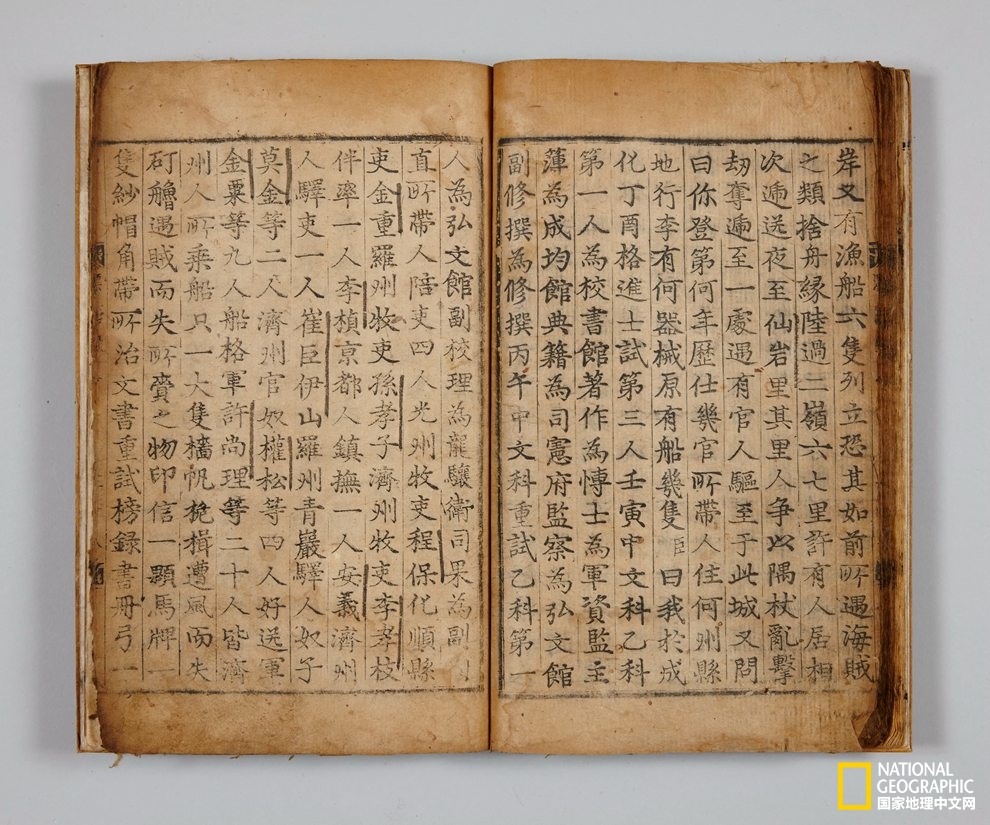 岸又有漁船六隻列立恐其如前所遇海賊
之類捨舟緣陸過二嶺六七里許有人居相
次遞送夜至仙岩里其里人爭以隅杖亂擊
刼奪遞至一處遇有官人驅至于此城又問
曰你登第何年歷仕幾官所帶人住何州縣
地行李有何器械原有船幾隻臣曰我於成
化丁酉格進士試第三人壬寅中文科乙科
第一人為校書館著作為博士為軍資監主
薄為成均館典籍為司憲府監察為弘文館
副修撰為修撰丙午中文科重試乙科第一
人為弘文館副校理為龍驤衛司果為副
直所帶人陪吏四人光州牧吏程保化順縣
吏金重羅州牧吏孫孝子濟州牧吏李孝枝
伴率一人李楨京都人鎮撫一人安義濟州
人驛吏一人崔臣伊山羅州青巖驛人奴子
莫金等二人濟州官奴權松等四人好送軍
金粟等九人船格軍許尚理等二十人皆濟
州人所乘船只一大隻檣帆桅楫遭風而失
矴艣遇賊而失所賷之物印信一顆馬牌一
隻紗帽角帶所治文書重試榜録書冊弓一
NATIONAL
GEOGRAPHIC
国家地理中文网